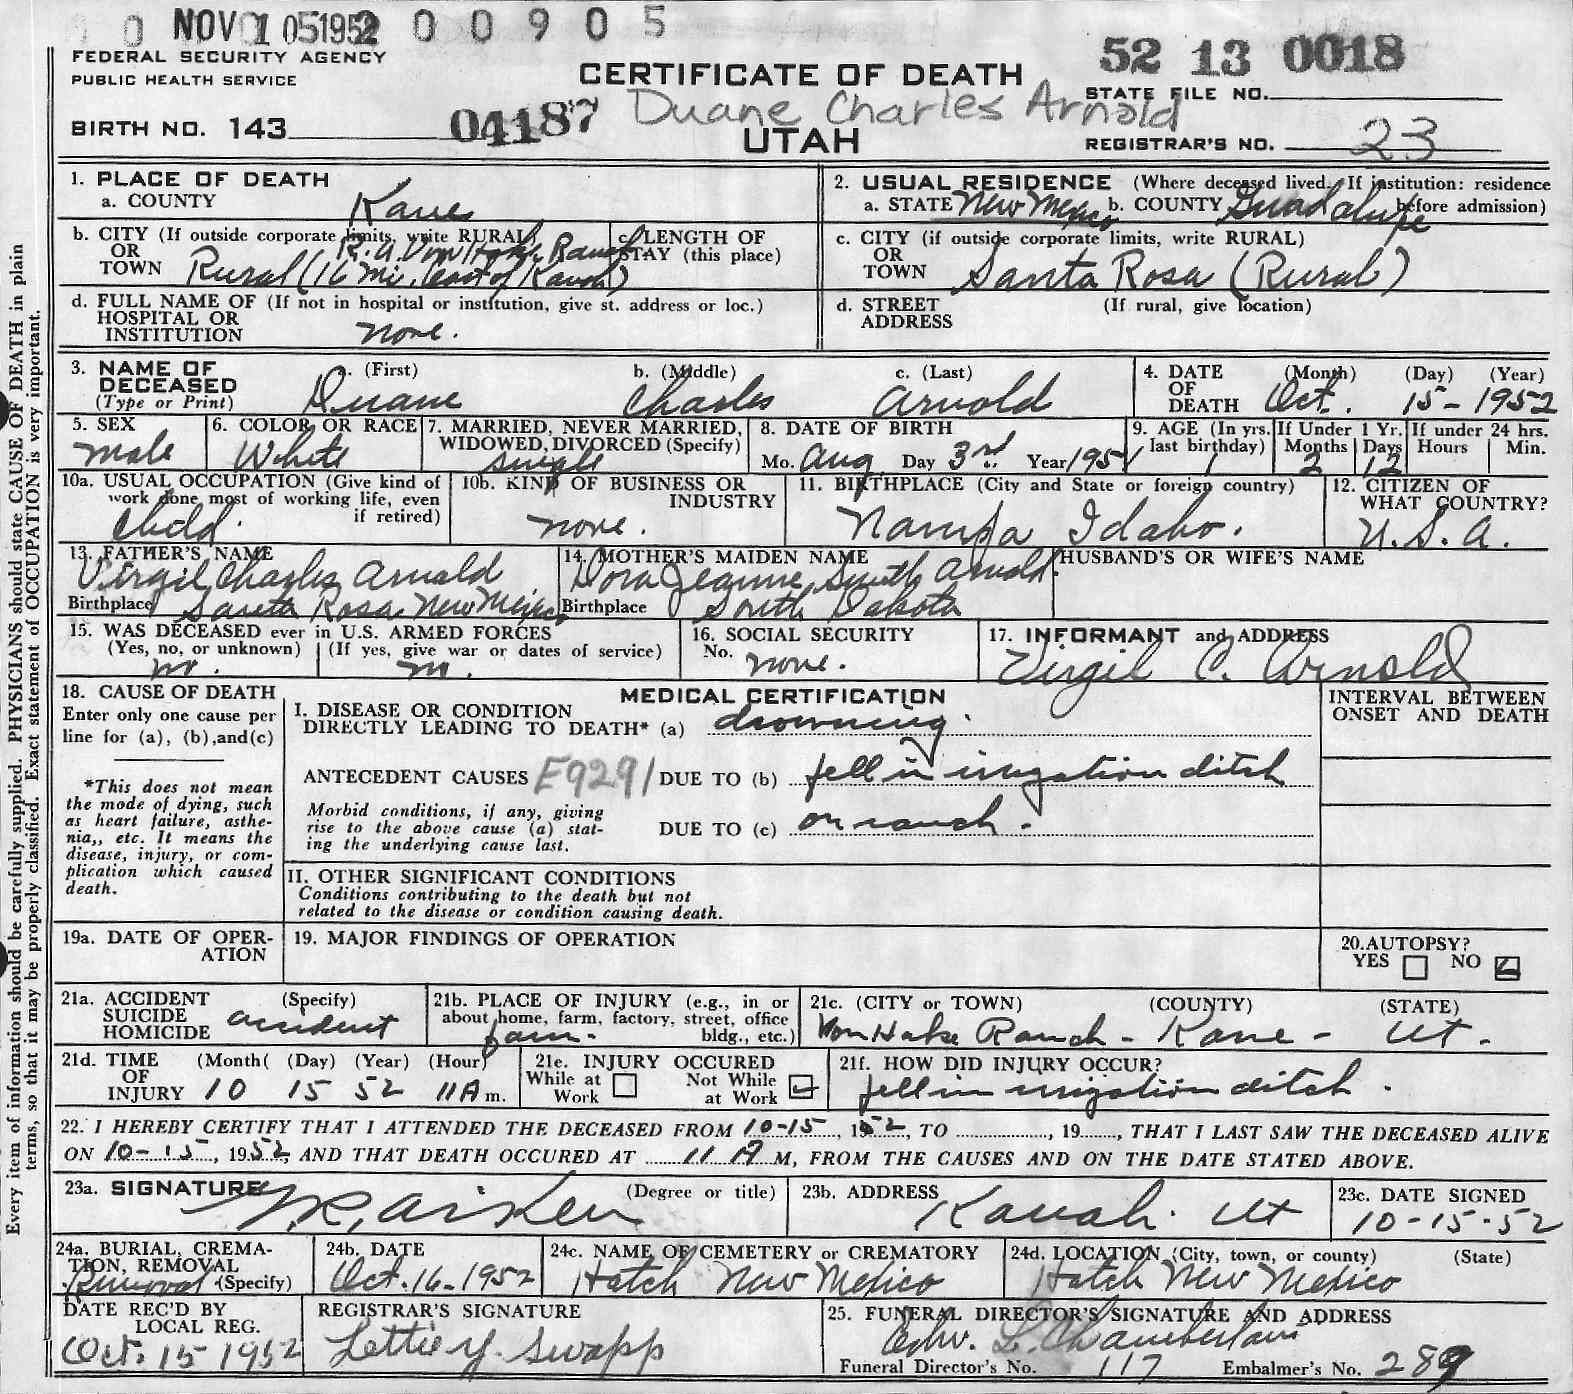 NOV 10 1952 0 0 9 0 5
FEDERAL SECURITY AGENCY
PUBLIC HEALTH SERVICE
CERTIFICATE OF DEATH
52 13 0018
STATE FILE NO.
BIRTH NO. 143 04187
Duane Charles Arnold
UTAH
REGISTRAR'S NO. 23
Every item of information should be carefully supplied. PHYSICIANS should state CAUSE OF DEATH in plain
terms, so that it may be properly classified. Exact statement of OCCUPATION is very important.
1. PLACE OF DEATH
a. COUNTY Kane
2. USUAL RESIDENCE (Where deceased lived. If institution: residence
a. STATE New Mexico b. COUNTY Guadalupe before admission)
b. CITY (If outside corporate limits, write RURAL)
OR
TOWN Rural (16 Mi. East of Kanab)
R.A. Von Hake Ranch
c. LENGTH OF
STAY (this place)
c. CITY (if outside corporate limits, write RURAL)
OR
TOWN Santa Rosa (Rural)
d. FULL NAME OF (If not in hospital or institution, give st. address or loc.)
HOSPITAL OR
INSTITUTION none.
d. STREET (If rural, give location)
ADDRESS
3. NAME OF DECEASED
(Type or Print)
a. (First) b. (Middle) c. (Last)
Duane Charles Arnold
4. DATE OF DEATH (Month) (Day) (Year)
Oct. 15 - 1952
5. SEX
male
6. COLOR OR RACE
White
7. MARRIED, NEVER MARRIED,
WIDOWED, DIVORCED (Specify)
single
8. DATE OF BIRTH
Mo. Aug Day 3rd Year 1951
9. AGE (In yrs. last birthday) 1
If Under 1 Yr. Months 2 Days 12
If under 24 hrs. Hours Min.
10a. USUAL OCCUPATION (Give kind of
work done most of working life, even
if retired)
child.
10b. KIND OF BUSINESS OR
INDUSTRY
none.
11. BIRTHPLACE (City and State or foreign country)
Nampa Idaho.
12. CITIZEN OF
WHAT COUNTRY?
U.S.A.
13. FATHER'S NAME
Virgil Charles Arnold
Birthplace Santa Rosa New Mexico
14. MOTHER'S MAIDEN NAME
Dora Jeanne Smith Arnold
Birthplace South Dakota
HUSBAND'S OR WIFE'S NAME
15. WAS DECEASED ever in U.S. ARMED FORCES
(Yes, no, or unknown) (If yes, give war or dates of service)
no. no.
16. SOCIAL SECURITY
No. none.
17. INFORMANT and ADDRESS
Virgil C. Arnold
18. CAUSE OF DEATH
Enter only one cause per
line for (a), (b),and(c)
*This does not mean
the mode of dying, such
as heart failure, asthe-
nia,, etc. It means the
disease, injury, or com-
plication which caused
death.
MEDICAL CERTIFICATION
I. DISEASE OR CONDITION
DIRECTLY LEADING TO DEATH* (a) drowning.
ANTECEDENT CAUSES E9291 DUE TO (b) fell in irrigation ditch
Morbid conditions, if any, giving
rise to the above cause (a) stat-
ing the underlying cause last.
DUE TO (c) on ranch.
INTERVAL BETWEEN
ONSET AND DEATH
II. OTHER SIGNIFICANT CONDITIONS
Conditions contributing to the death but not
related to the disease or condition causing death.
19a. DATE OF OPER-
ATION
19. MAJOR FINDINGS OF OPERATION
20. AUTOPSY?
YES NO
21a. ACCIDENT (Specify)
SUICIDE
HOMICIDE accident
21b. PLACE OF INJURY (e.g., in or
about home, farm, factory, street, office
bldg., etc.)
farm.
21c. (CITY or TOWN) (COUNTY) (STATE)
Von Hake Ranch - Kane - Ut.
21d. TIME OF INJURY (Month( (Day) (Year) (Hour)
10 15 52 11A m.
21e. INJURY OCCURED
While at Work Not While at Work
21f. HOW DID INJURY OCCUR?
fell in irrigation ditch.
22. I HEREBY CERTIFY THAT I ATTENDED THE DECEASED FROM 10-15, 1952, TO ........, 19....., THAT I LAST SAW THE DECEASED ALIVE
ON 10-15, 1952, AND THAT DEATH OCCURED AT 11 A M, FROM THE CAUSES AND ON THE DATE STATED ABOVE.
23a. SIGNATURE (Degree or title)
Aiken
23b. ADDRESS
Kanab. Ut
23c. DATE SIGNED
10-15-52
24a. BURIAL, CREMA-
TION, REMOVAL
Removal (Specify)
24b. DATE
Oct. 16-1952
24c. NAME OF CEMETERY or CREMATORY
Hatch New Mexico
24d. LOCATION (City, town, or county) (State)
Hatch New Mexico
DATE REC'D BY
LOCAL REG.
Oct. 15 1952
REGISTRAR'S SIGNATURE
Lettie Y. Swapp
25. FUNERAL DIRECTOR'S SIGNATURE AND ADDRESS
L. Chamberlain
Funeral Director's No. 117 Embalmer's No. 289